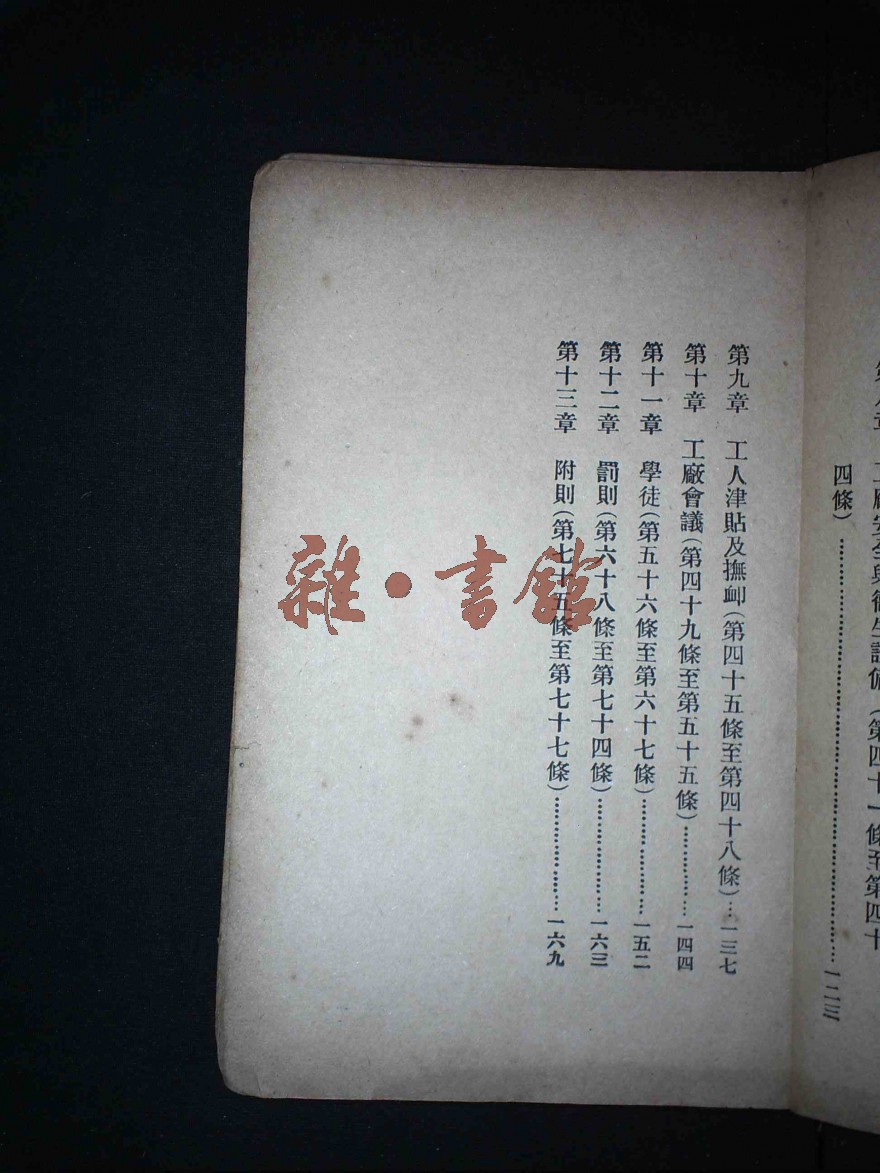 第八章　工廠安全與衞生設備（第四十一條至第四十
四條）……………………………………一二三
第九章　工人津貼及撫卹（第四十五條至第四十八條）…一三七
第十章　工廠會議（第四十九條至第五十五條）……………一四四
第十一章　學徒（第五十六條至第六十七條）………………一五二
第十二章　罰則（第六十八條至第七十四條）………………一六三
第十三章　附則（第七十五條至第七十七條）………………一六九
雜·書館